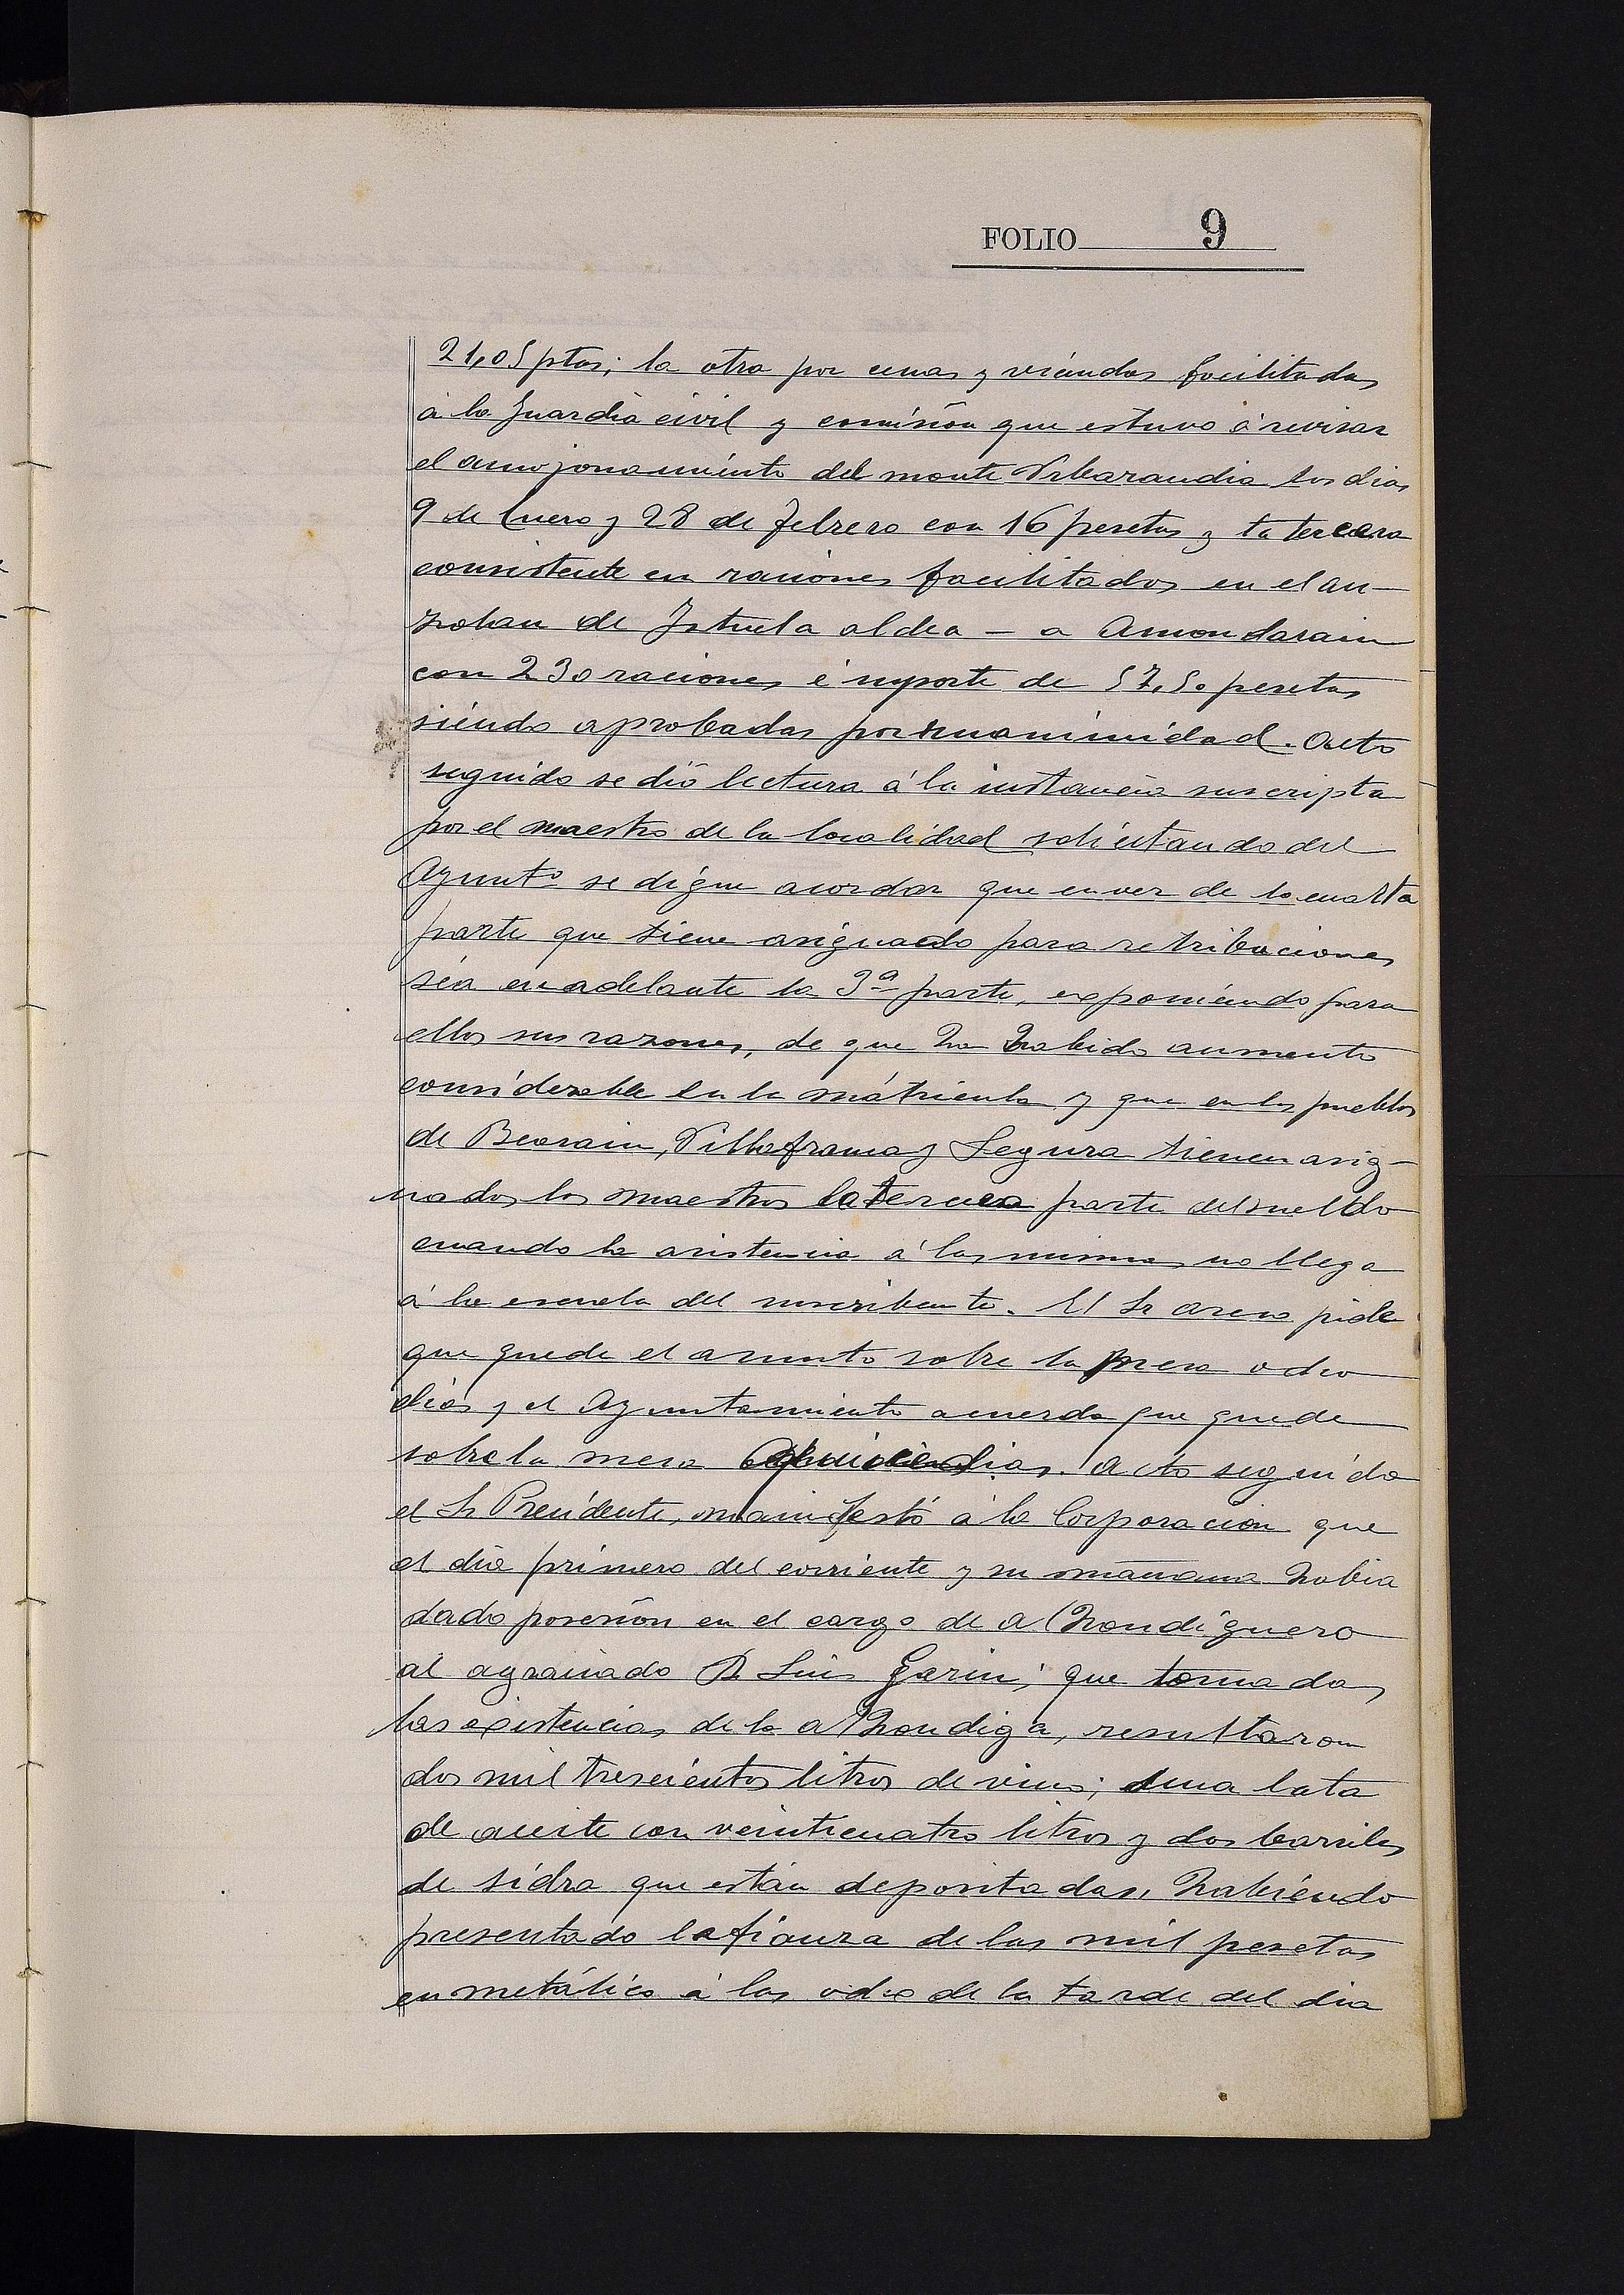 FOLIO 9
21,05 ptas; la otra por cenas y viandas facilitadas
á la Guardia civil y comisión que estuvo á revisar
el amojonamiento del monte Urbarandia los dias
9 de Enero y 28 de Febrero con 16 pesetas y la tercera
consistente en raciones facilitados en el au-
zolan de aldea - a Amondarain
con 230 raciones é importe de 57,50 pesetas
siendo aprobadas por unanimidad. Acto
seguido se dió lectura á la instancia suscripta
por el maestro de la localidad solicitando del
Ayuntº se digne acordar que en vez de la cuarta
parte que tiene asignado para retribuciones
sea en adelante la 3ª parte, exponiendo para
ellos sus razones, de que ha habido aumento
considerable en la matricula y que en los pueblos
de Beasain, Villafranca y Segura tienen asig-
nados los maestros la tercera parte del sueldo
cuando la asistencia á las mismas no llega
á la escuela del suscribente. El Sr Areso pide
que quede el asunto sobre la mesa ocho
dias y el Ayuntamiento acuerda que quede
sobre la mesa quince dias. Acto seguido
el Sr Presidente, manifestó á la Corporacion que
el dia primero del corriente y su mañana habia
dado posesión en el cargo de Alhondiguero
al agraciado D Luis Garin; que tomadas
las existencias de la Alhondiga, resultaron
dos mil trescientos litros de vino; una lata
de aceite con veinticuatro litros y dos barriles
de sidra que están depositadas, habiendo
presentado la fianza de las mil pesetas
en metálico á las ocho de la tarde del dia